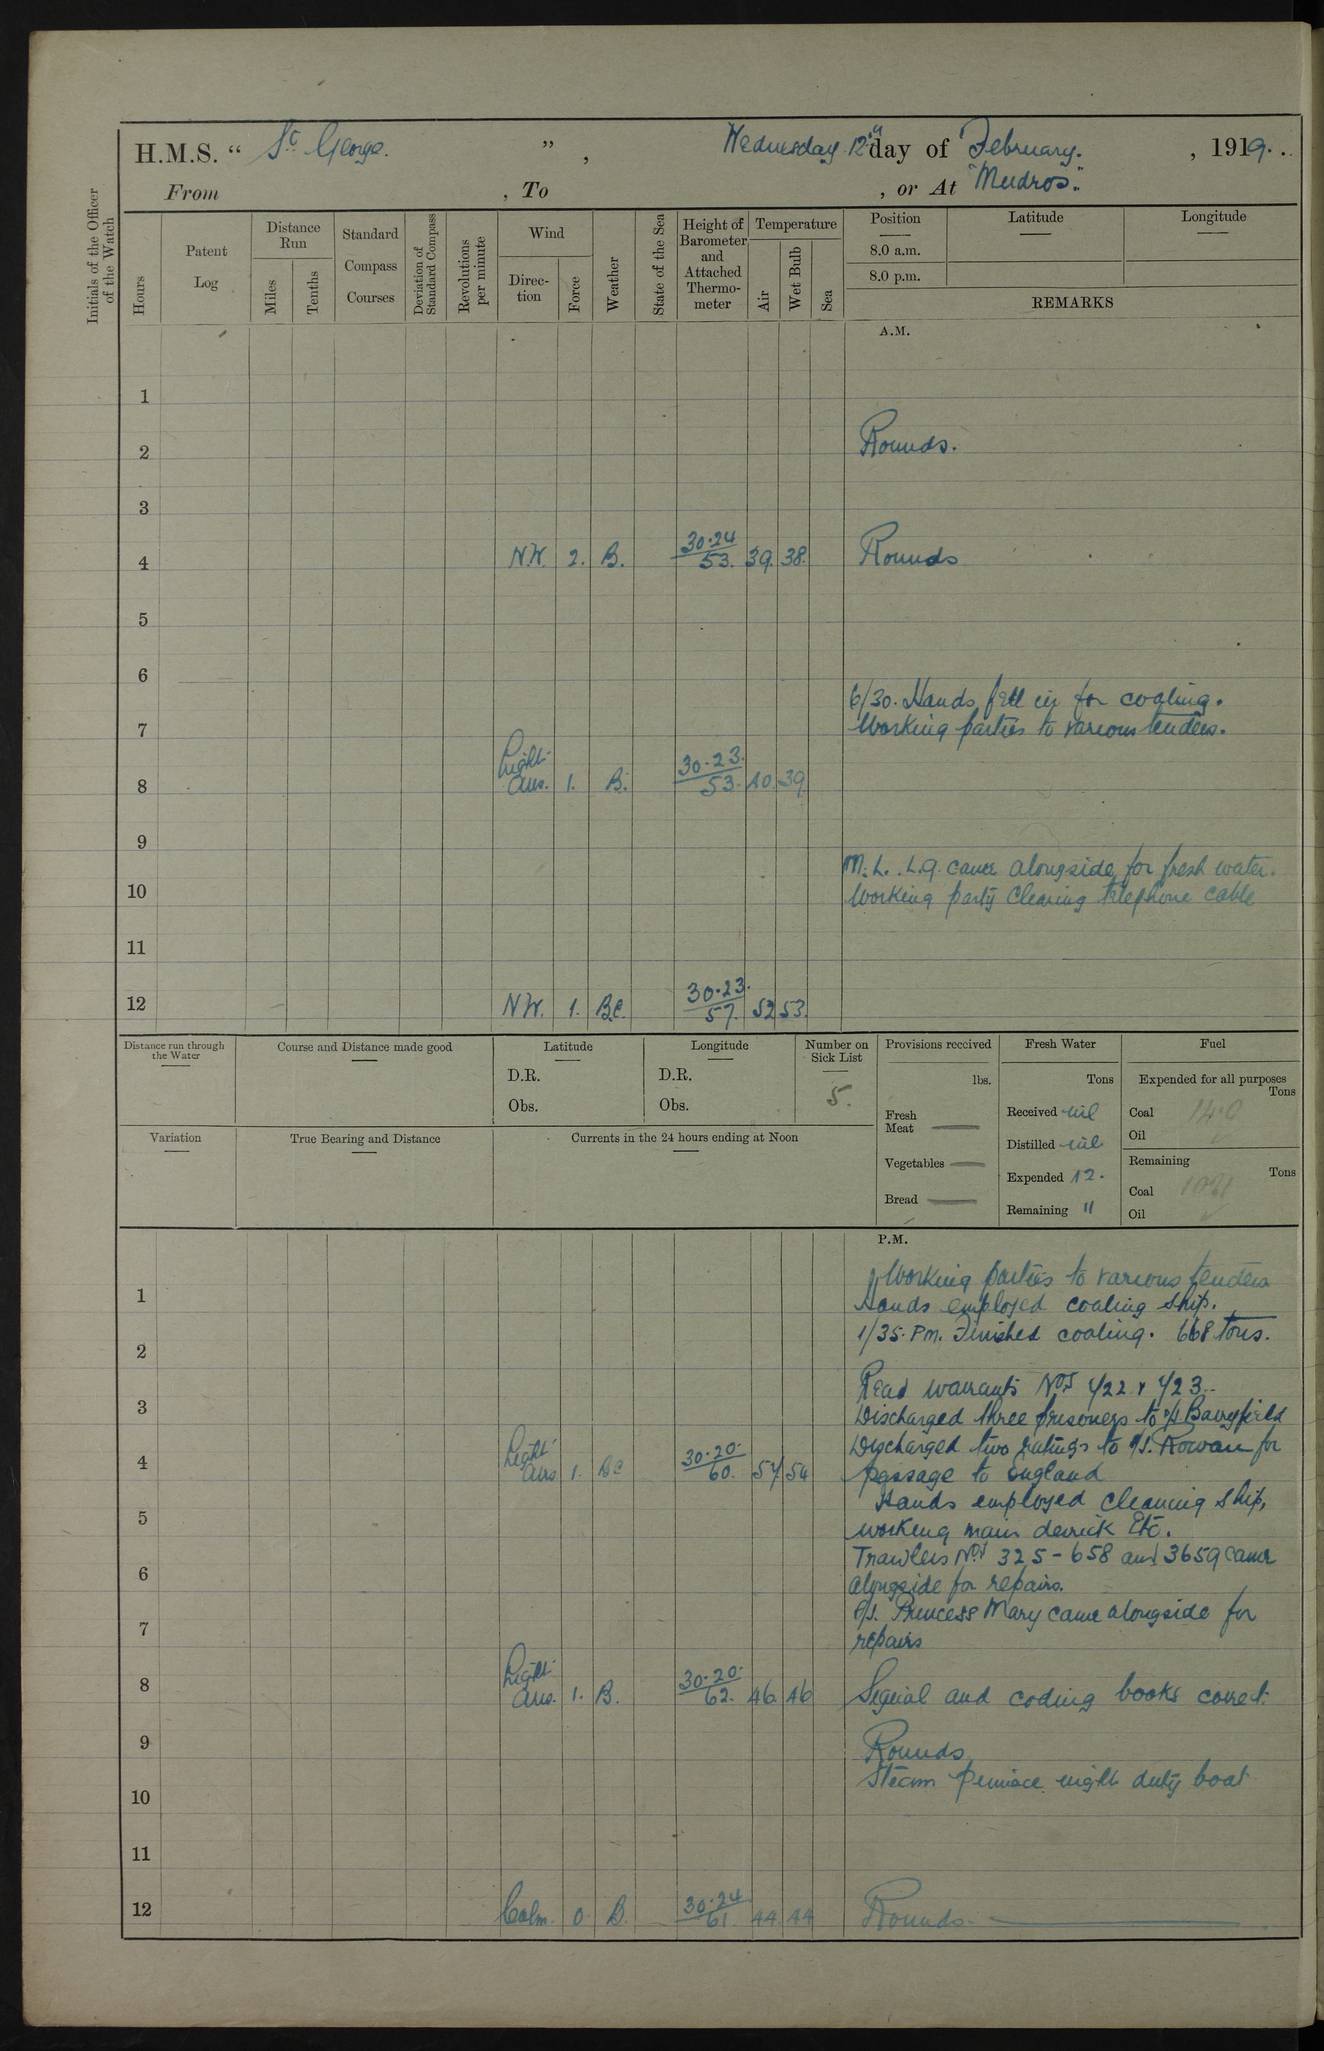 H.M.S. “ St. George. ” , Wednesday 12th day of February. , 1919.
From , To , or At "Mudros".
Initials of the Officer of the Watch
Hours
Patent Log
Distance Run
Miles
Tenths
Standard Compass Courses
Deviation of Standard Compass
Revolutions per minute
Wind
Direction
Force
Weather
State of the Sea
Height of Barometer and Attached Thermometer
Temperature
Air
Wet Bulb
Sea
Position Latitude Longitude
8.0 a.m.
8.0 p.m.
REMARKS
A.M.
1
2 Rounds.
3
4 N.W. 2. B. 30.24 53. 39. 38. Rounds
5
6
6/30. Hands fell in for coaling.
7 Working parties to various tenders.
8 Light Airs. 1. B. 30.23. 53. 40. 39
9
M.L. came alongside for fresh water.
10 Working party clearing telephone cable
11
12 N.W. 1. B.C. 30.23. 57. 52 53.
Distance run through the Water
Course and Distance made good
Latitude
D.R.
Obs.
Longitude
D.R.
Obs.
Number on Sick List
5.
Provisions received
lbs.
Fresh Meat
Vegetables
Bread
Fresh Water
Tons
Received nil
Distilled nil
Expended 12.
Remaining "
Fuel
Expended for all purposes
Tons
Coal 14.0
Oil
Remaining
Tons
Coal
Oil
Variation
True Bearing and Distance
Currents in the 24 hours ending at Noon
P.M.
Working parties to various tenders
1 Hands employed coaling ship.
1/35. P.M. Finished coaling. 668 tons.
2
Read warrants Nos 422 & 423.
3 Discharged three prisoners to
Discharged two ratings to S.S. Rowan for
4 Light Airs 1. BC 30.20. 60. 57 54 passage to England
Hands employed cleaning ship,
5 working main derrick Etc.
Trawlers Nos 325 - 658 and 3659 came
6 alongside for repairs.
P/S. Princess Mary came alongside for
7 repairs
8 Light Airs. 1. B. 30.20. 62. 46. 46 Signal and coding books correct.
9 Rounds
Steam pinnace night duty boat
10
11
12 Calm. 0. B. 30.24 61 44. 44 Rounds.